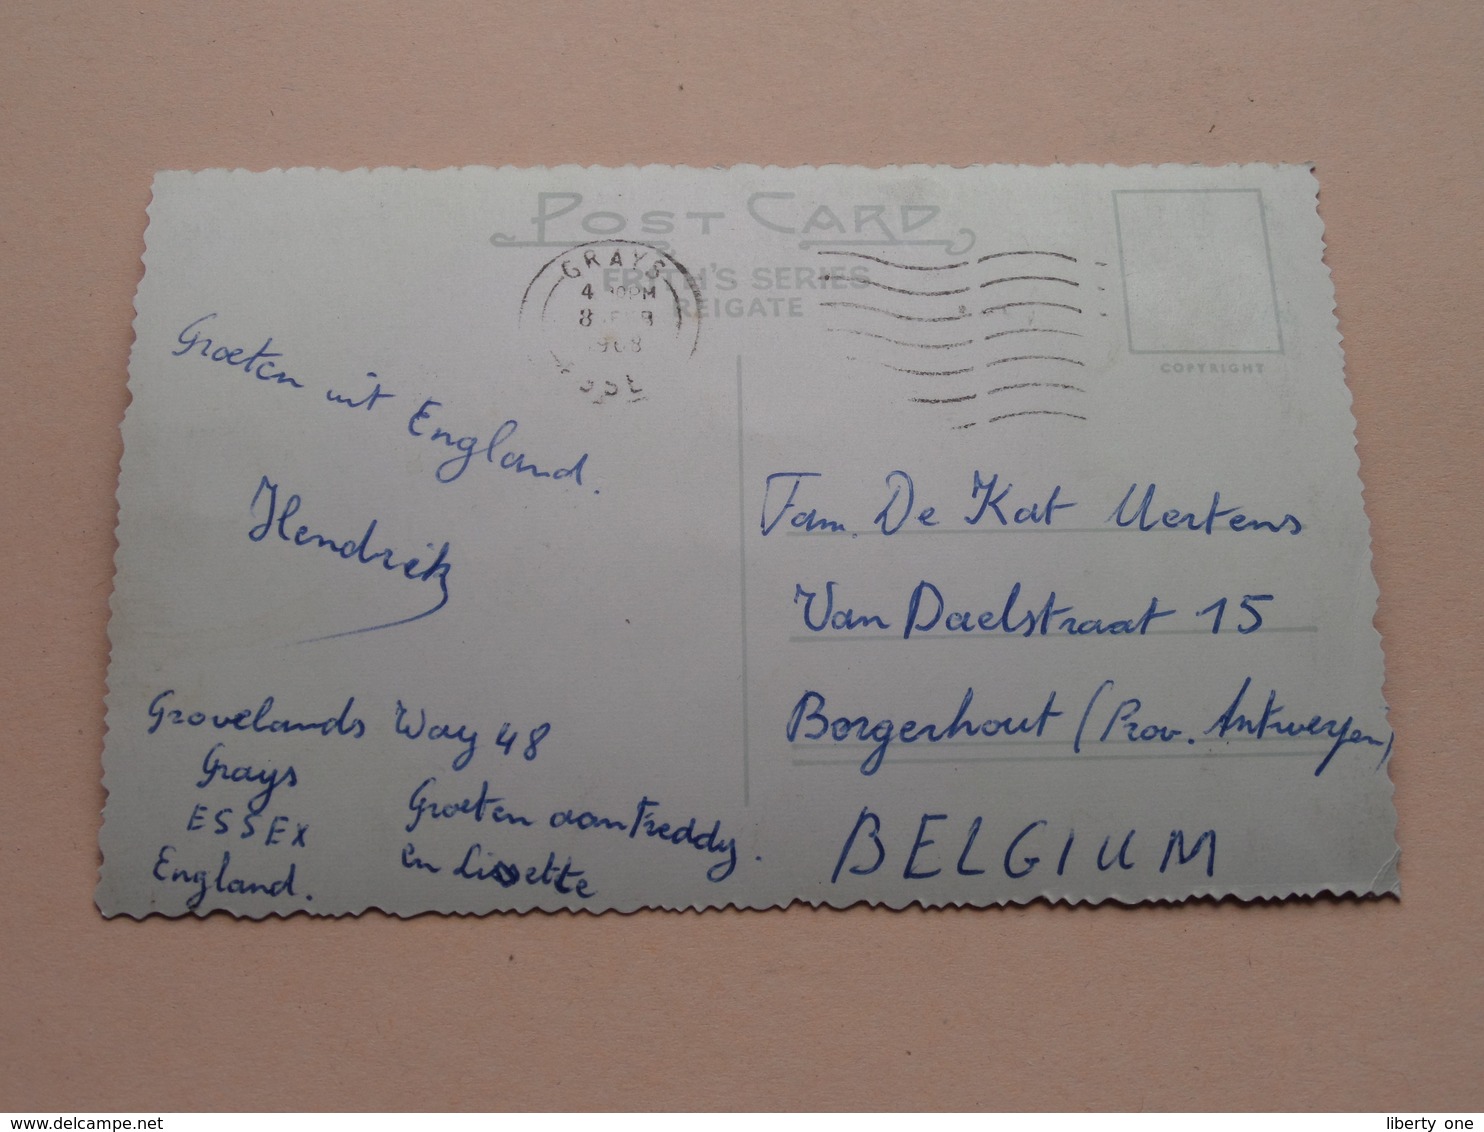 POST CARD
FRITH'S SERIES
REIGATE
GRAYS
4 PM
8
1968
COPYRIGHT
Groeten uit England.
Hendrik
Grovelands Way 48
Grays
ESSEX
England.
Groeten aan Freddy.
en Lissette
Fam. De Kat Mertens
Van Daelstraat 15
Borgerhout (Prov. Antwerpen)
BELGIUM
www.delcampe.net
liberty one